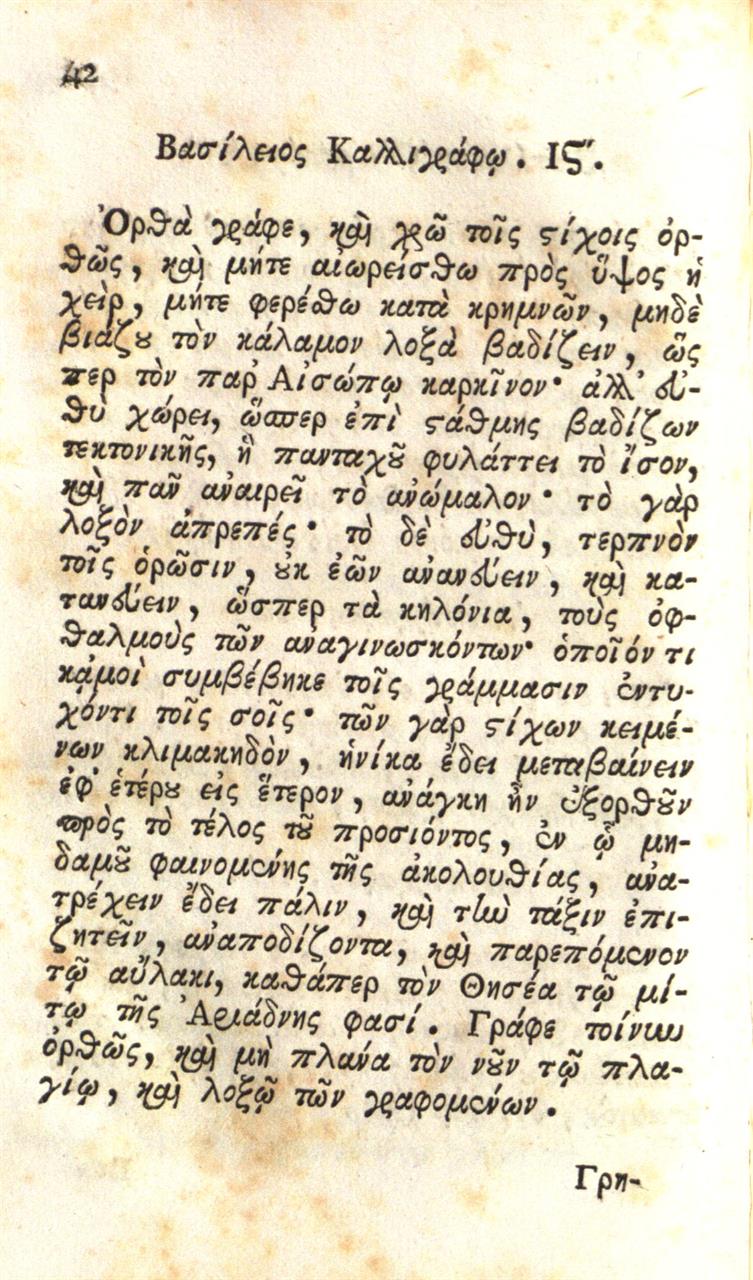 42
Βασίλειος Καλλιγράφῳ. Ις΄΄.
Ὀρθὰ γράφε, καὶ χρῶ τοῖς στίχοις ὀρ-
θῶς, καὶ μήτε αἰωρείσθω πρὸς ὕψος ἡ
χεὶρ, μήτε φερέσθω κατὰ κρημνῶν, μηδὲ
βιάζου τὸν κάλαμον λοξὰ βαδίζειν, ὥς
περ τὸν παρ' Αἰσώπῳ καρκῖνον· ἀλλ' εὐ-
θὺ χώρει, ὥσπερ ἐπὶ στάθμης βαδίζων
τεκτονικῆς, ἣ πανταχοῦ φυλάττει τὸ ἴσον,
καὶ πᾶν ἀναιρεῖ τὸ ἀνώμαλον· τὸ γὰρ
λοξὸν ἀπρεπές· τὸ δὲ εὐθὺ, τερπνὸν
τοῖς ὁρῶσιν, οὐκ ἐῶν ἀνανεύειν, καὶ κα-
τανεύειν, ὥσπερ τὰ κηλόνια, τοὺς ὀφ-
θαλμοὺς τῶν ἀναγινωσκόντων· ὁποῖόν τι
κᾀμοὶ συμβέβηκε τοῖς γράμμασιν ἐντυ-
χόντι τοῖς σοῖς· τῶν γὰρ στίχων κειμέ-
νων κλιμακηδὸν, ἡνίκα ἔδει μεταβαίνειν
ἐφ' ἑτέρου εἰς ἕτερον, ἀνάγκη ἦν ἐξορθοῦν
πρὸς τὸ τέλος τοῦ προσιόντος, ἐν ᾧ μη-
δαμοῦ φαινομένης τῆς ἀκολουθίας, ἀνα-
τρέχειν ἔδει πάλιν, καὶ τὴν τάξιν ἐπι-
ζητεῖν, ἀναποδίζοντα, καὶ παρεπόμενον
τῷ αὔλακι, καθάπερ τὸν Θησέα τῷ μί-
τῳ τῆς Ἀριάδνης φασί. Γράφε τοίνυν
ὀρθῶς, καὶ μὴ πλανάα τὸν νοῦν τῷ πλα-
γίῳ, καὶ λοξῷ τῶν γραφομένων.
Γρη-